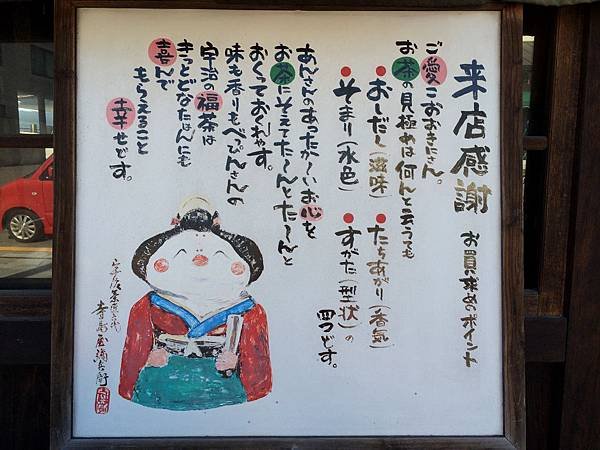 来店感謝 お買求めのポイント
ご愛こおおきにさん。
お茶の見極めは何んと云うても
おーだし(滋味)
たちあがり(香気)
そまり(水色)
すがた(型状)の
四つどす。
あんさんのあったか〜いお心を
お茶にそえてた〜んとた〜んと
おくっておくれやす。
味も香りもべっぴんさんの
宇治の福茶は
きっとどなたはんにも
喜んで
もらえること
幸せどす。